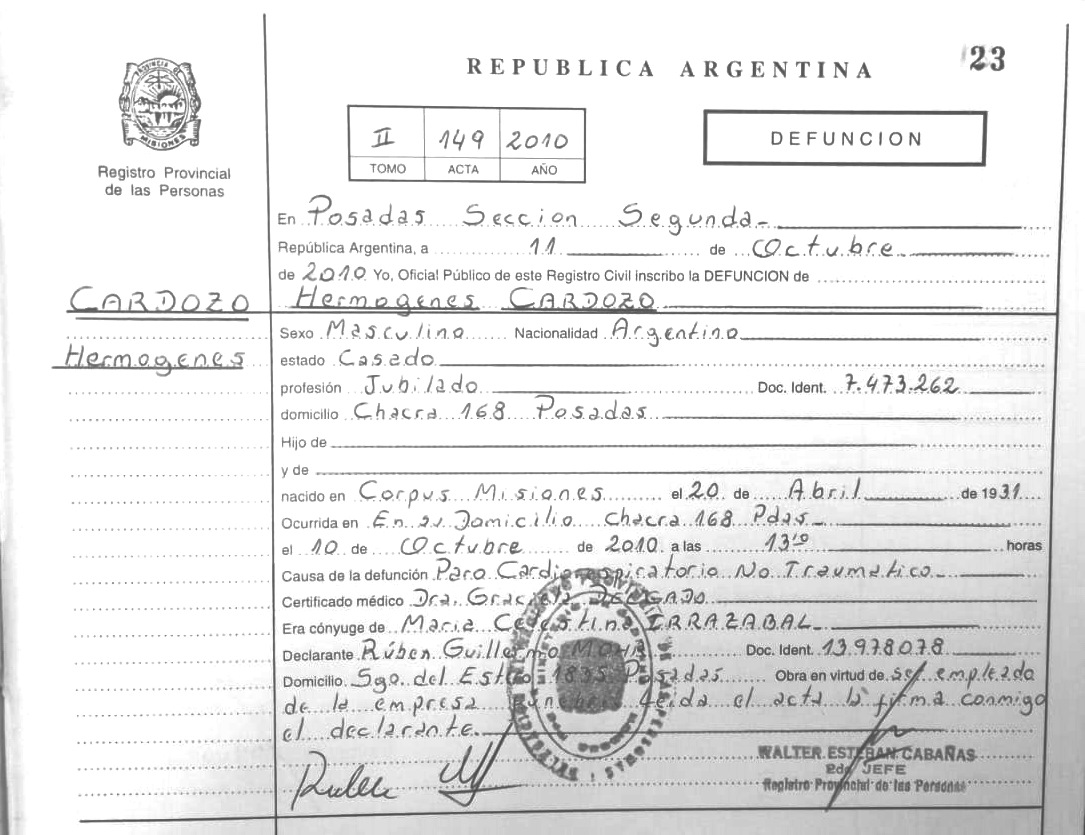 23
REPUBLICA ARGENTINA
PROVINCIA DE MISIONES
Registro Provincial
de las Personas
II 149 2010
TOMO ACTA AÑO
DEFUNCION
En Posadas Seccion Segunda-
República Argentina, a 11 de Octubre
de 2010 Yo, Oficial Público de este Registro Civil inscribo la DEFUNCION de
CARDOZO
Hermogenes CARDOZO
Hermogenes
Sexo Masculino Nacionalidad Argentino
estado Casado
profesión Jubilado Doc. Ident. 7.473.262
domicilio Chacra 168 Posadas
Hijo de
y de
nacido en Corpus Misiones el 20 de Abril de 1931
Ocurrida en En su Domicilio Chacra 168 Pdas
el 10 de Octubre de 2010 a las 13¹⁰ horas
Causa de la defunción Paro Cardiorespiratorio No Traumatico
Certificado médico Dra. Graciela DELGADO
Era cónyuge de Maria Celestina IRRAZABAL
Declarante Rúben Guillermo Doc. Ident. 13.978.078
Domicilio Sgo. del Estro 1835 Posadas Obra en virtud de ser empleado
de la empresa funebre leida el acta la firma conmigo
el declarante
WALTER ESTEBAN CABAÑAS
2do JEFE
Registro Provincial de las Personas